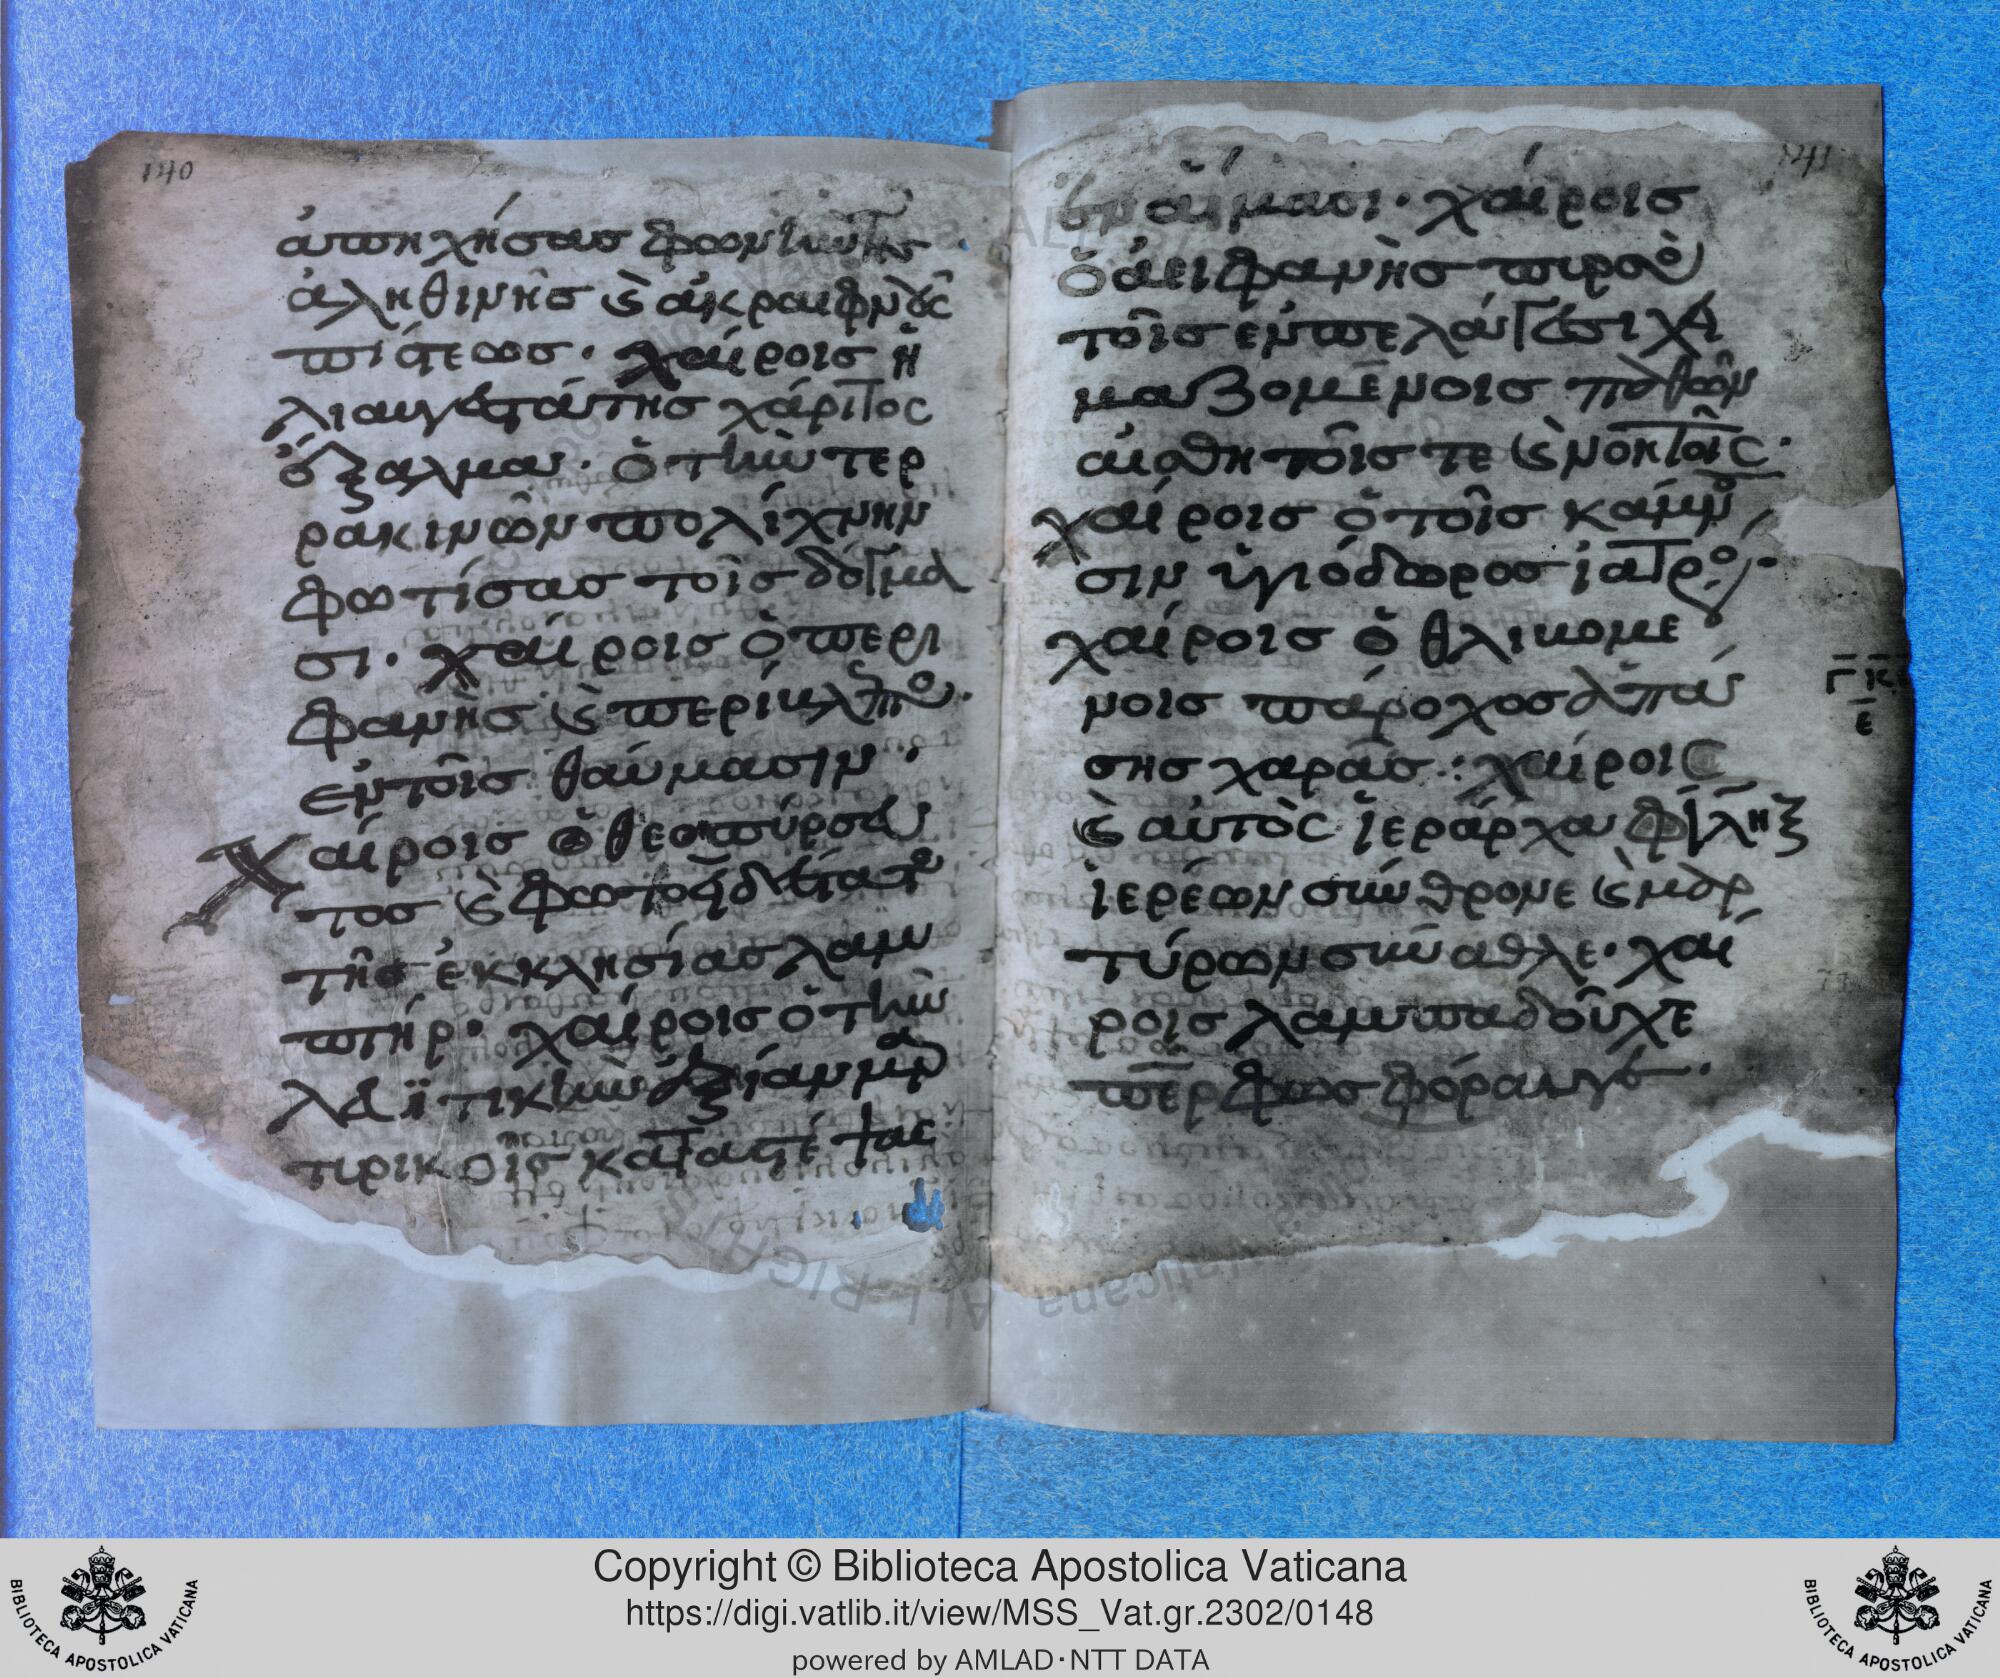 140
ἀπηχήσας φωνὴν τῆς
ἀληθινῆς καὶ ἀκραιφνοῦς
πίστεως· χαίροις ἡ
λιαυγεστάτης χάριτος
ὁ τὴν τερ
ρακινῶν πολίχνην
φωτίσας τοῖς δόγμα
σι· χαίροις ὁ περι
φανὴς καὶ περίκλυτος
ἐν τοῖς θαύμασιν·
χαίροις ὁ θεόπυρσος
τος καὶ φωτοειδέστατος
τῆς ἐκκλησίας λαμ
πτήρ· χαίροις ὁ τὴν
τιρικοῖς καταστέψας
141
αἵμασι· χαίροις
ὁ ἀειφανὴς πυρσὸς
τοῖς ἐν πελάγεσι χει
μαζομένοις
αἰσθητοῖς τε καὶ νοητοῖς·
χαίροις ὁ τοῖς κάμνου
σιν ὑγιόδωρος ἰατρός·
χαίροις ὁ θλιβομέ
νοις πάροχος πά
σης χαρᾶς: χαίροις
καὶ αὐτὸς ἱεράρχα Φῆλιξ
ἱερέων σύνθρονε καὶ μαρ
τύρων σύναθλε· χαί
ροις λαμπαδοῦχε
πάτερ φωσφόραυγές·
Copyright © Biblioteca Apostolica Vaticana
https://digi.vatlib.it/view/MSS_Vat.gr.2302/0148
powered by AMLAD·NTT DATA
BIBLIOTECA APOSTOLICA VATICANA
BIBLIOTECA APOSTOLICA VATICANA